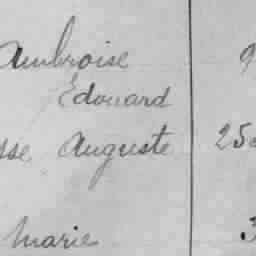 Ambroise 9
Edouard
sse Auguste 25
Marie 3